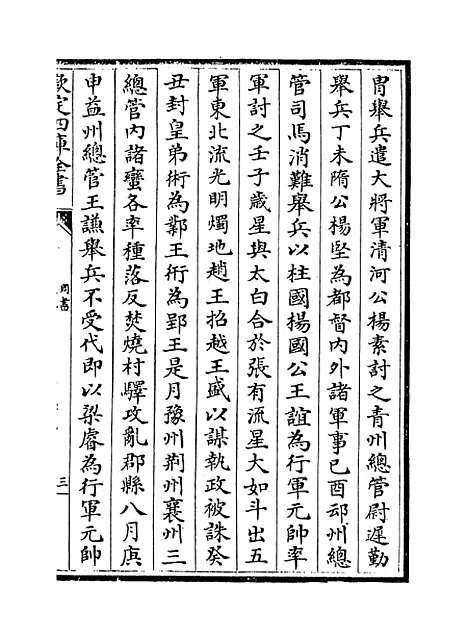 胄舉兵遣大將軍清河公楊素討之青州總管尉遲勤
舉兵丁未隋公楊堅為都督内外諸軍事已酉邵州總
管司馬消難舉兵以柱國楊國公王誼為行軍元帥率
軍討之壬子歲星與太白合於張有流星大如斗出五
軍東北流光明燭地趙王招越王盛以謀執政被誅癸
丑封皇弟術為鄴王術為郢王是月豫州荆州襄州三
總管内諸蠻各率種落反焚燒村驛攻亂郡縣八月庚
申益州總管王謙舉兵不受代即以梁睿為行軍元帥
欽定四庫全書
周書
三